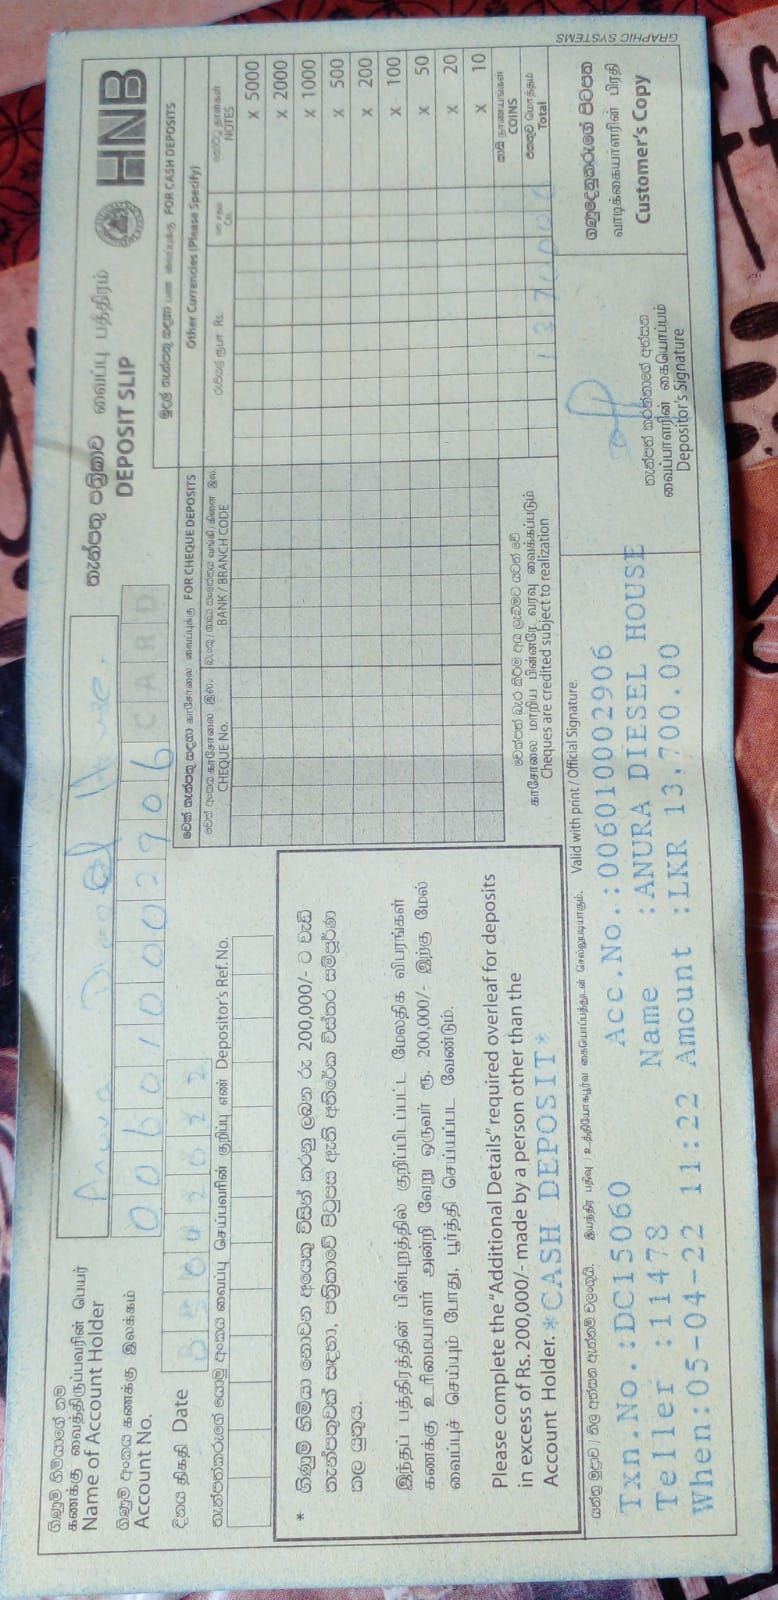 තැන්පතු පත්‍රිකාව வைப்பு பத்திரம்
DEPOSIT SLIP
HNB
ගිණුම් හිමියාගේ නම
கணக்கு வைத்திருப்பவரின் பெயர்
Name of Account Holder
Anura Diesel House.
ගිණුම් අංකය கணக்கு இலக்கம்
Account No.
006010002906 CARD
දිනය திகதி Date
05042022
තැන්පත්කරුගේ යොමු අංකය வைப்பு செய்பவரின் குறிப்பு எண் Depositor's Ref. No.
චෙක් තැන්පතු සඳහා காசோலை வைப்புக்கு FOR CHEQUE DEPOSITS
චෙක් අංකය காசோலை இல.
CHEQUE No.
BANK / BRANCH CODE
මුදල් තැන්පතු සඳහා பண வைப்புக்கு FOR CASH DEPOSITS
Other Currencies (Please Specify)
රුපියල් ரூபா Rs.
NOTES
X 5000
X 2000
X 1000
X 500
X 200
X 100
X 50
X 20
X 10
කාසි நாணயங்கள்
COINS
එකතුව மொத்தம்
Total
* ගිණුම් හිමියා නොවන අයෙකු විසින් කරනු ලබන රු 200,000/- ට වැඩි
තැන්පතුවක් සඳහා, පත්‍රිකාවේ පිටුපස ඇති අතිරේක විස්තර සම්පූර්ණ
කල යුතුය.
இந்தப் பத்திரத்தின் பின்புறத்தில் குறிப்பிடப்பட்ட மேலதிக விபரங்கள்
கணக்கு உரிமையாளர் அன்றி வேறு ஒருவர் ரூ. 200,000/- இற்கு மேல்
வைப்புச் செய்யும் போது, பூர்த்தி செய்யப்பட வேண்டும்.
Please complete the "Additional Details" required overleaf for deposits
in excess of Rs. 200,000/- made by a person other than the
Account Holder.
*CASH DEPOSIT*
காசோலை மாறிய பின்னரே வரவு வைக்கப்படும்
Cheques are credited subject to realization
Valid with print / Official Signature.
Txn.No.:DC15060 Acc.No.:006010002906
Teller :11478 Name :ANURA DIESEL HOUSE
When:05-04-22 11:22 Amount :LKR 13,700.00
තැන්පත් කරන්නාගේ අත්සන
வைப்பாளரின் கையொப்பம்
Depositor's Signature
ගණුදෙනුකරුගේ පිටපත
வாடிக்கையாளரின் பிரதி
Customer's Copy
GRAPHIC SYSTEMS